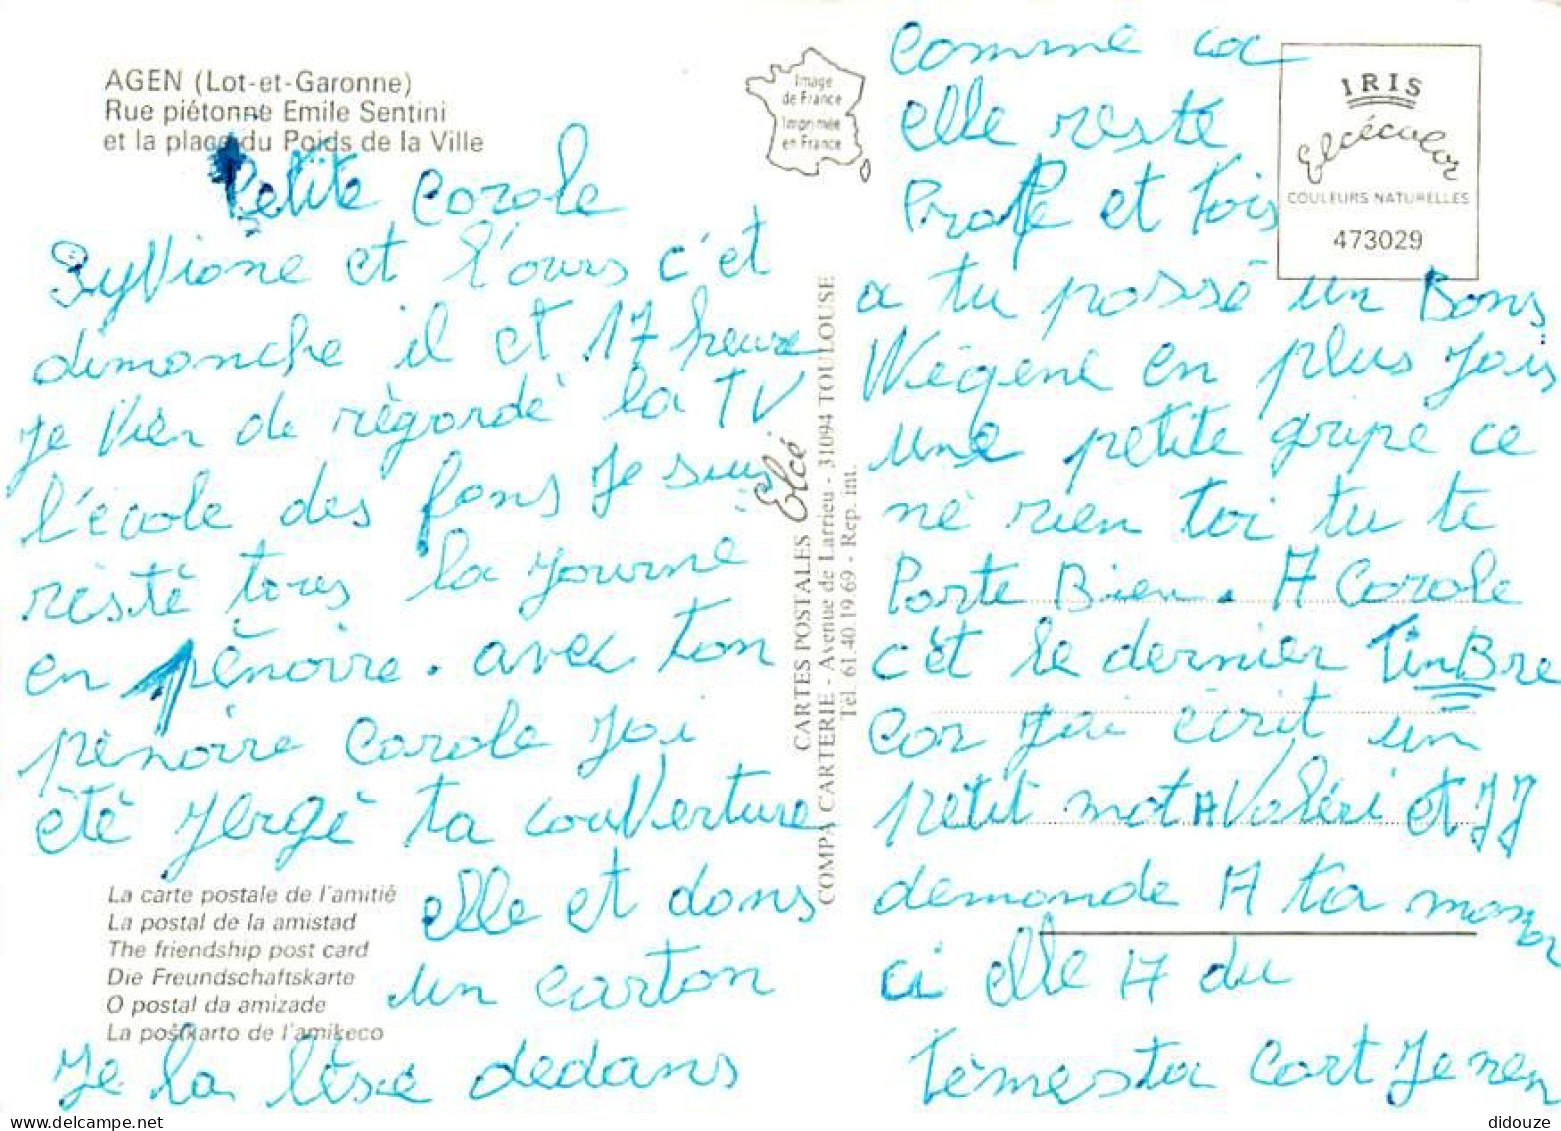 AGEN (Lot-et-Garonne)
Rue piétonne Emile Sentini
et la place du Poids de la Ville
Petite Corole
Syvione et l'ours c'et
dimanche il et 17 heure
Je vien de régordé la TV
l'école des fons Je suis
résté tous la journé
en pénoire. avec ton
pénoire Carole Joi
été Jergé ta couverture
elle et dons
un carton
Je la lésé dedans
La carte postale de l'amitié
La postal de la amistad
The friendship post card
Die Freundschaftskarte
O postal da amizade
La poŝtkarto de l'amikeco
Image
de France
Imprimée
en France
CARTES POSTALES Elcé
COMPA CARTERIE - Avenue de Larrieu - 31094 TOULOUSE
Tél. 61.40.19.69 - Rep. int.
IRIS
Elcécolor
COULEURS NATURELLES
473029
Comme ca
elle resté
Prope et tois
a tu possé un Bons
Wégène en plus Jais
une petite gripe ce
né rien toi tu te
Porte Bien. A Corole
c'ét le dernier TinBre
Cor Jai écrit un
pétit mot A Voléri et JJ
demonde A ta moman
ci elle A du
Témesta Cort Je nen
didouze